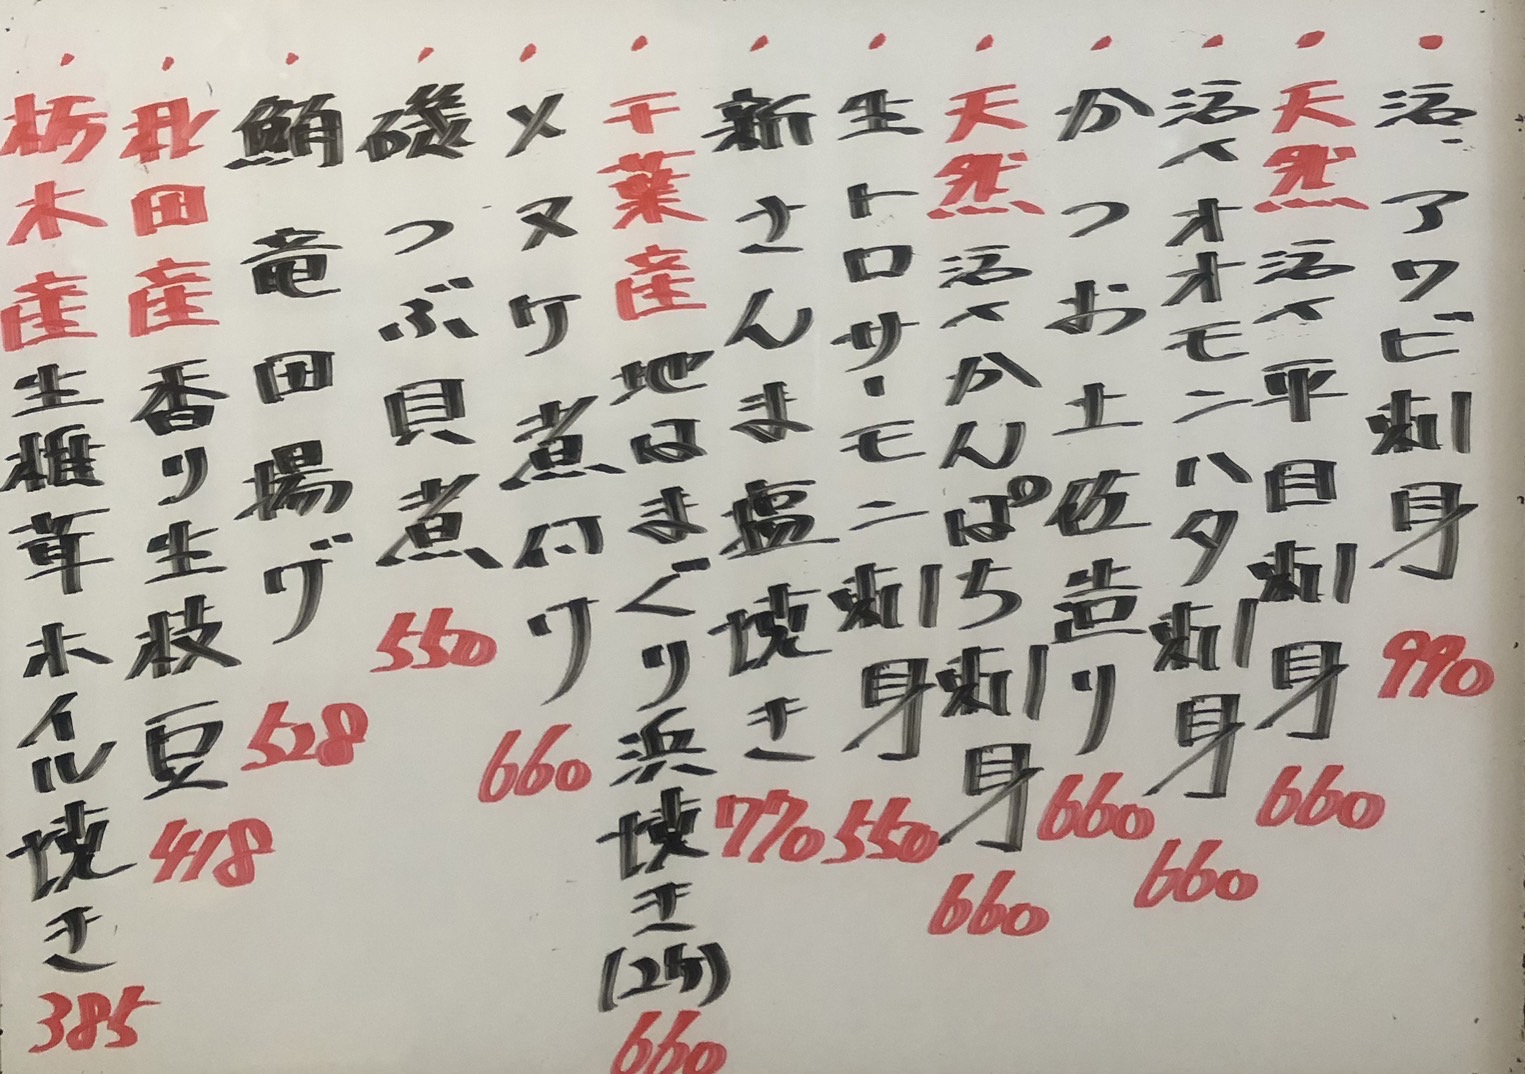 活〆アワビ刺身 990
天然活〆平目刺身 660
活〆オオモンハタ刺身 660
かつお土佐造り 660
天然活〆かんぱち刺身 660
生トロサーモン刺身 550
新さんま塩焼き 770
千葉産地はまぐり浜焼き(2ケ) 660
メヌケ煮付け 660
磯つぶ貝煮 550
鮪竜田揚げ 528
秋田産香り生枝豆 418
栃木産生椎茸ホイル焼き 385